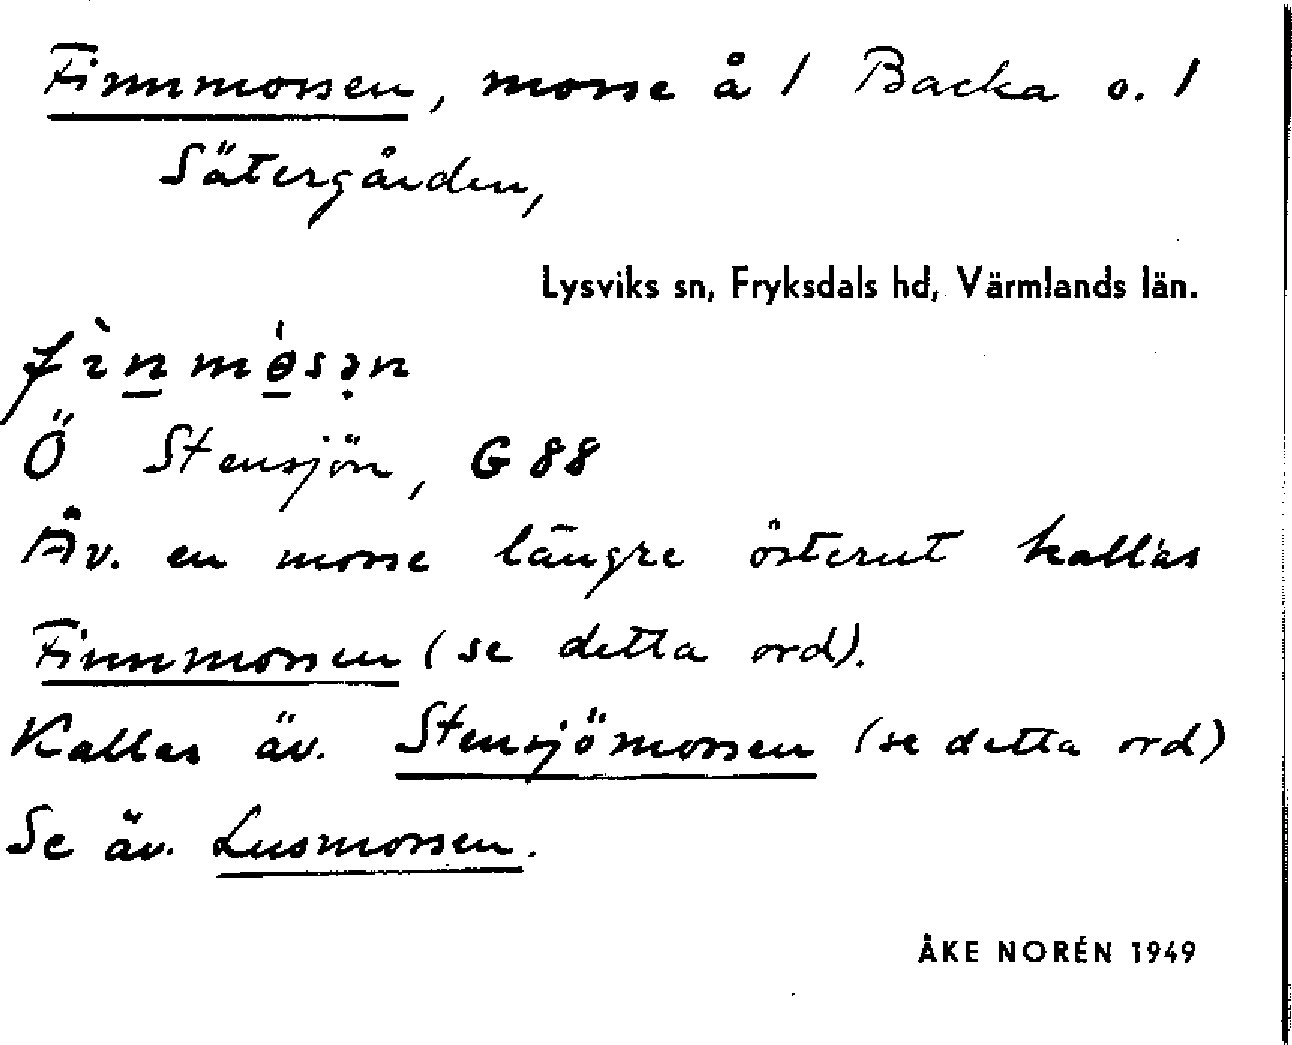 Finnmossen, mosse å 1 Backa o. 1
Sätergården,
Lysviks sn, Fryksdals hd, Värmlands län.
fìnmósən
Ö Stensjön, G 88
Äv. en mosse längre österut kallas
Finnmossen (se detta ord).
Kallas äv. Stensjömossen (se detta ord)
Se äv. Lusmossen.
ÅKE NORÉN 1949